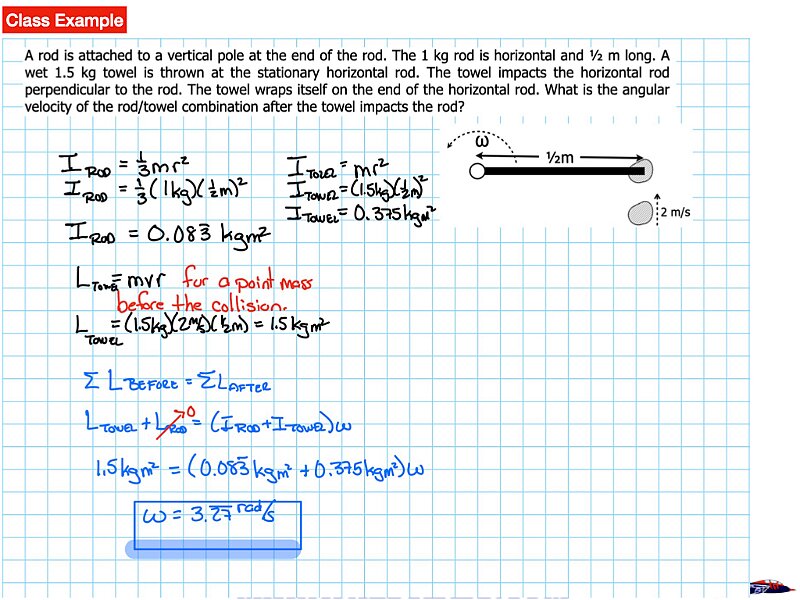 Class Example
A rod is attached to a vertical pole at the end of the rod. The 1 kg rod is horizontal and ½ m long. A
wet 1.5 kg towel is thrown at the stationary horizontal rod. The towel impacts the horizontal rod
perpendicular to the rod. The towel wraps itself on the end of the horizontal rod. What is the angular
velocity of the rod/towel combination after the towel impacts the rod?
ω
½m
2 m/s
I ROD = 1/3 mr²
I ROD = 1/3 (1kg)(1/2m)²
I ROD = 0.083̄ kgm²
I TOWEL = mr²
I TOWEL = (1.5kg)(1/2m)²
I TOWEL = 0.375kgm²
L TOWEL = mvr for a point mass
before the collision.
L TOWEL = (1.5kg)(2m/s)(1/2m) = 1.5kgm²
Σ L BEFORE = Σ L AFTER
L TOWEL + L ROD 0 = (I ROD + I TOWEL)ω
1.5kgm² = (0.083̄ kgm² + 0.375kgm²)ω
ω = 3.2̄7̄ rad/s